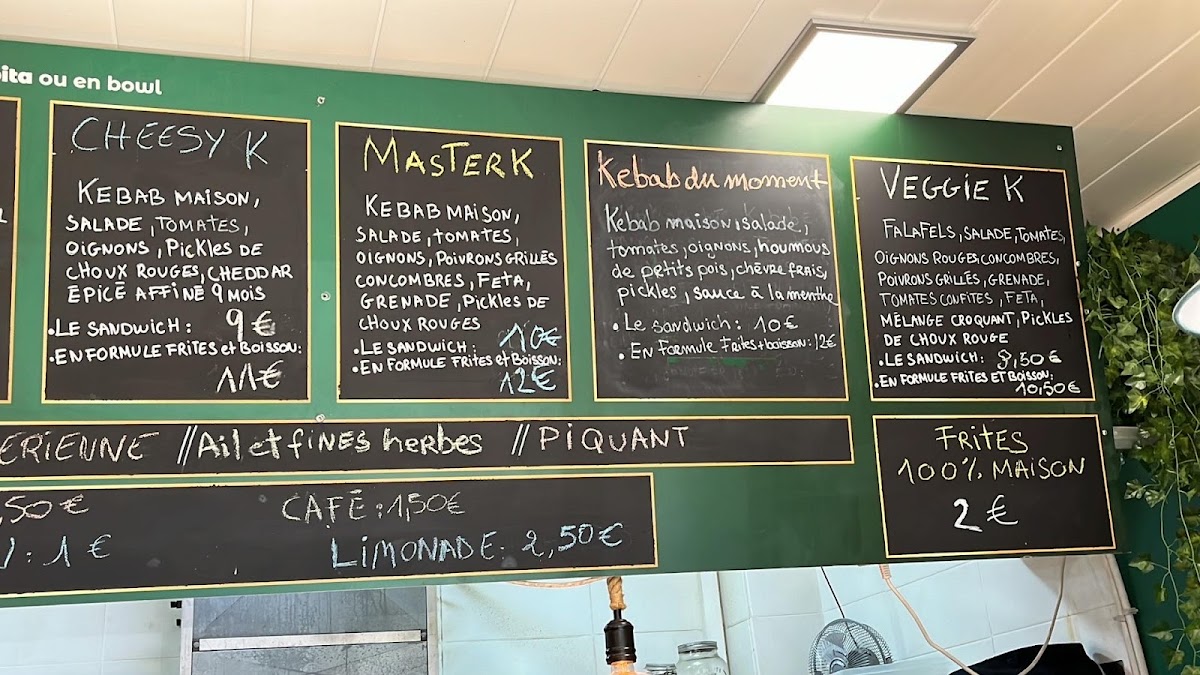 pita ou en bowl
CHEESY K
KEBAB MAISON,
SALADE, TOMATES,
OIGNONS, PICKLES DE
CHOUX ROUGES, CHEDDAR
ÉPICÉ AFFINÉ 9 MOIS
• LE SANDWICH : 9 €
• EN FORMULE FRITES et BOISSON:
11 €
MASTER K
KEBAB MAISON,
SALADE, TOMATES,
OIGNONS, POIVRONS GRILLÉS
CONCOMBRES, FETA,
GRENADE, PICKLES DE
CHOUX ROUGES
• LE SANDWICH : 10 €
• EN FORMULE FRITES et BOISSON:
12 €
Kebab du moment
Kebab maison, salade,
tomates, oignons, houmous
de petits pois, chèvre frais,
pickles, sauce à la menthe
• Le sandwich : 10 €
• EN Formule Frites + boisson: 12 €
VEGGIE K
FALAFELS, SALADE, TOMATES,
OIGNONS ROUGES, CONCOMBRES,
POIVRONS GRILLÉS, GRENADE,
TOMATES CONFITES, FETA,
MÉLANGE CROQUANT, PICKLES
DE CHOUX ROUGE
• LE SANDWICH: 8,50 €
• EN FORMULE FRITES ET BOISSON:
10,50 €
ERIENNE // Ail et fines herbes // PIQUANT
,50 € CAFÉ : 1,50 €
: 1 € LIMONADE: 2,50 €
FRITES
100% MAISON
2 €